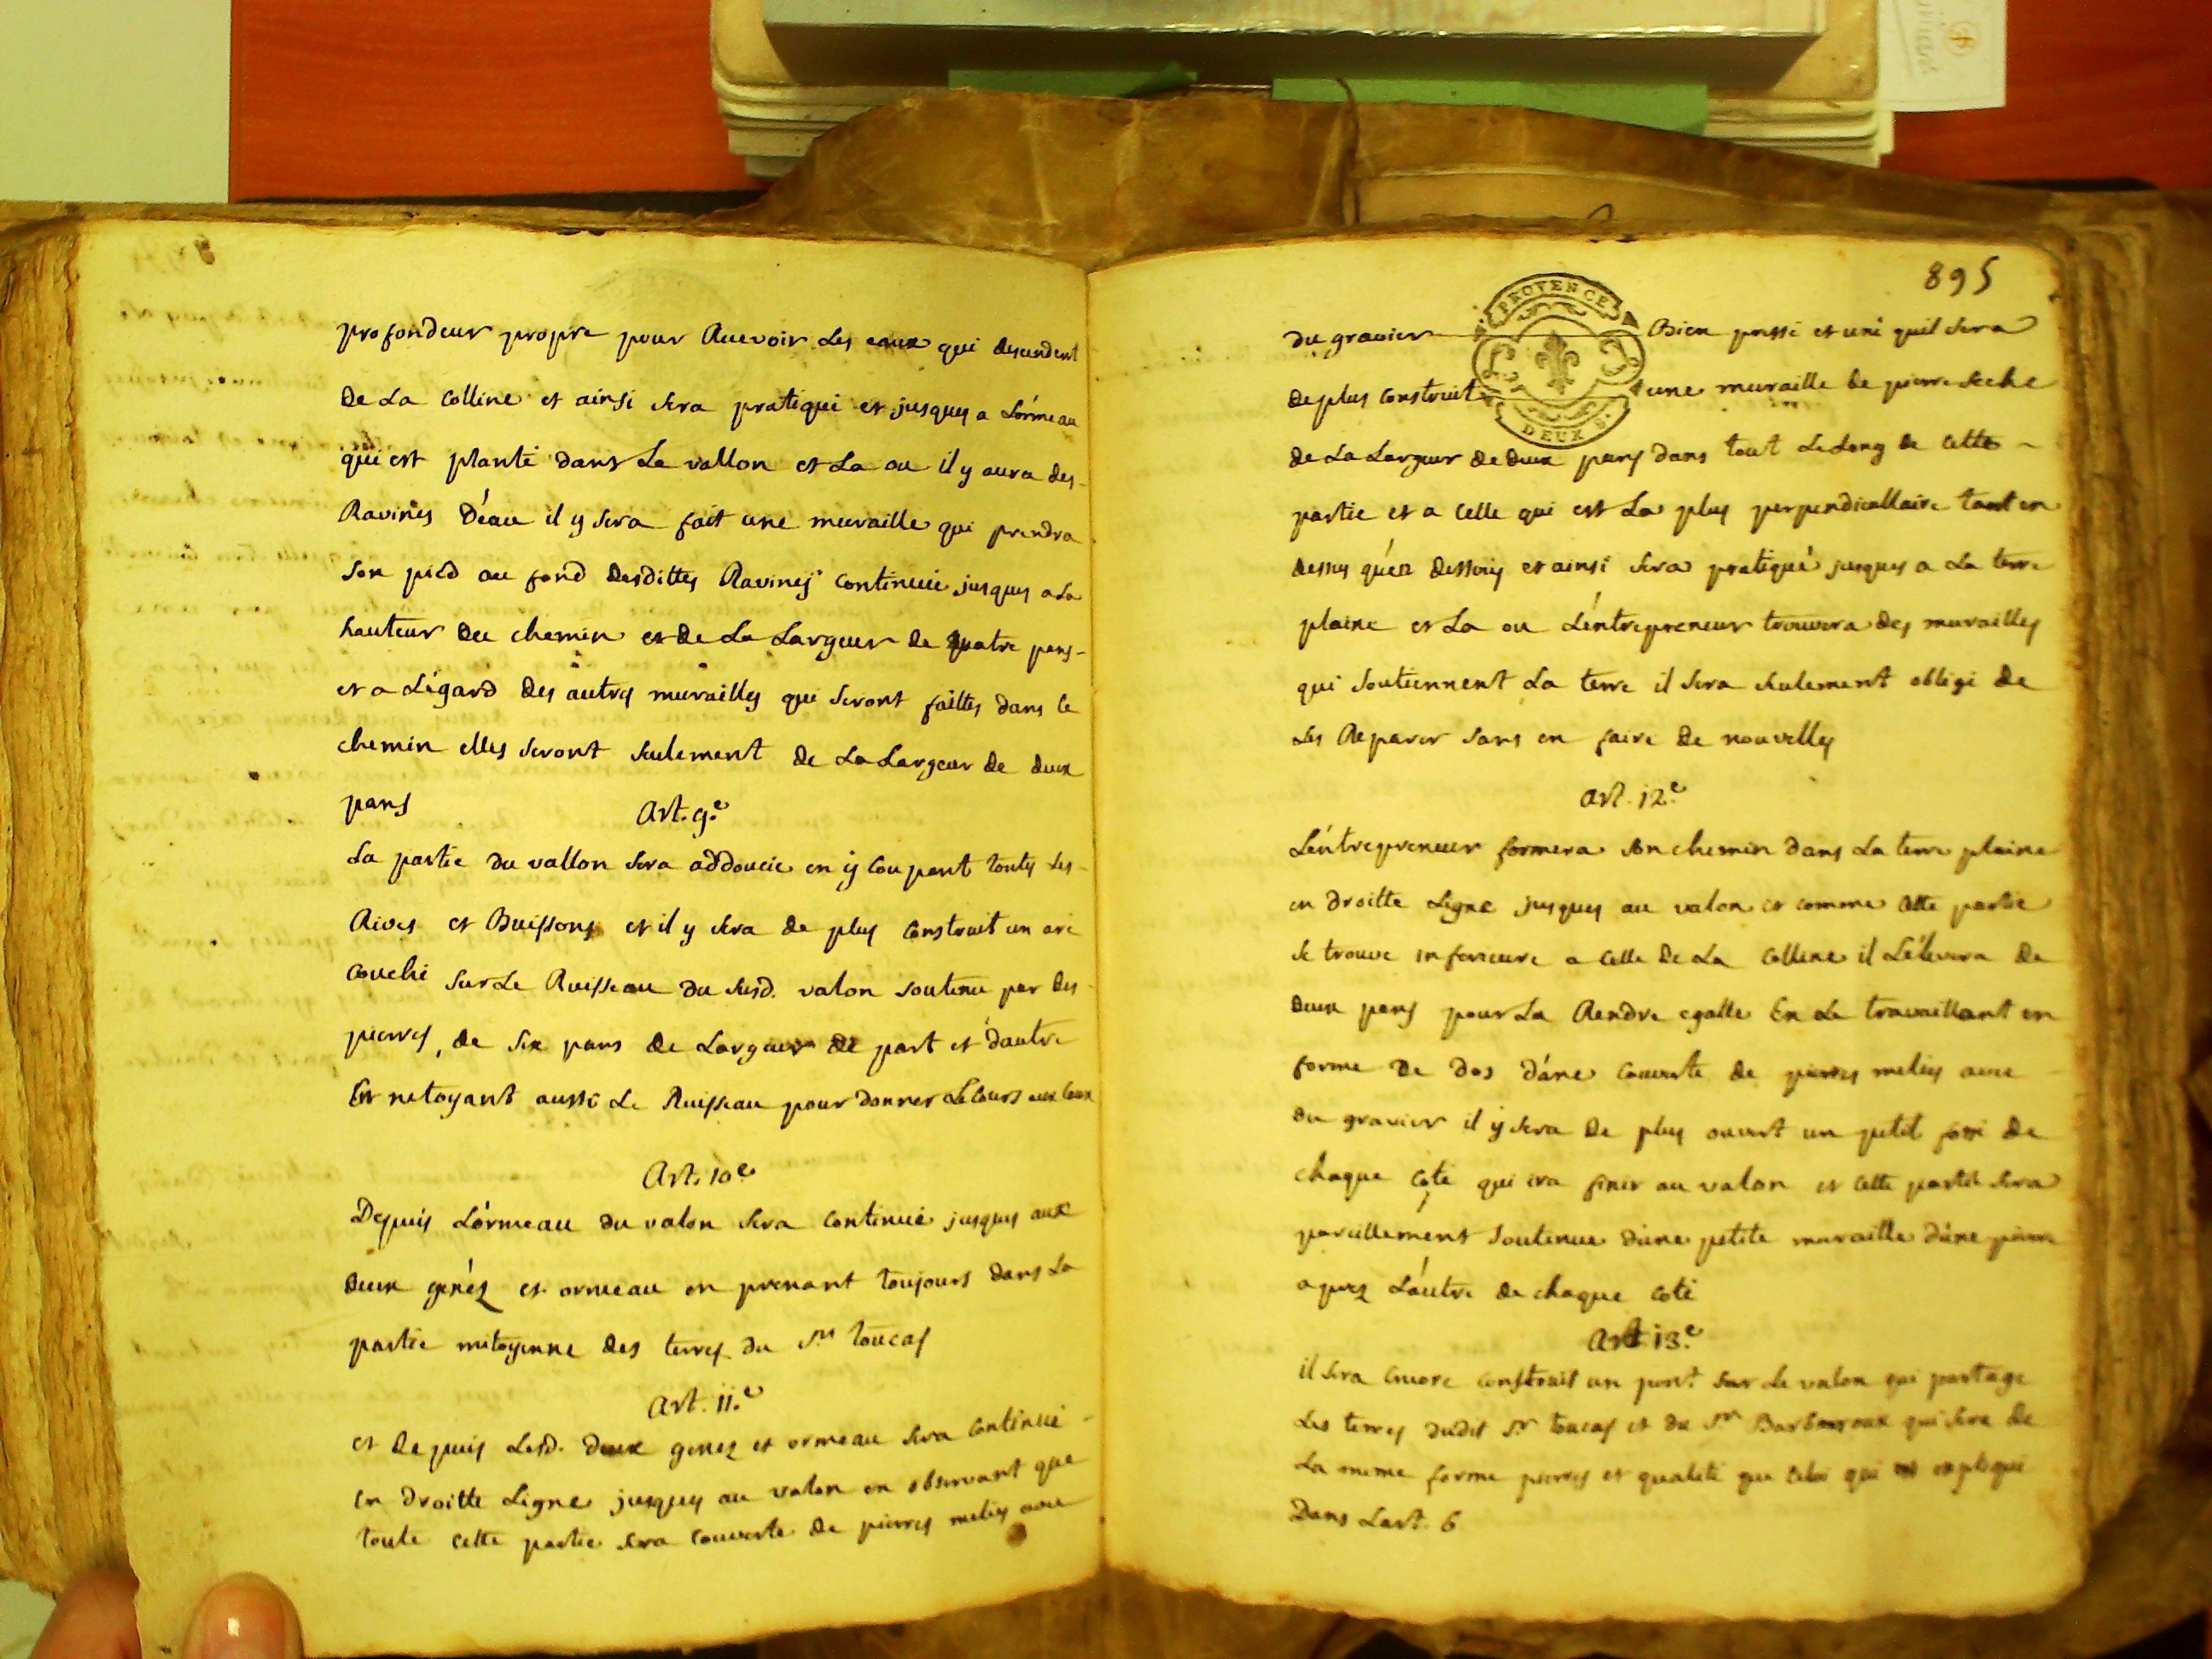 profondeur propre pour Recevoir Les eaux qui descendent
de La Colline et ainsi sera pratiqué et jusques a Lórmeau
qui est planté dans Le vallon et La ou il y aura des
Ravines D'éau il y sera fait une muraille qui prendra
son pied au fond desdittes Ravines continuée jusques a La
hauteur du chemin et de La Largeur de quatre pans
et a L'égard des autres murailles qui seront faittes dans le
chemin elles seront seulement de La Largeur de deux
pans
Art. 9.e
La partie du vallon sera addoucie en y coupant touts Les
Rives et Buissons et il y sera de plus construit un arc
couché sur Le Ruisseau du susd. valon soutenu par des
pierres, de six pans de Largeur de part et d'autre
En netoyant aussi Le Ruisseau pour donner Le Cours aux Eaux
Art. 10.e
Depuis Lórmeau du valon sera continué jusques aux
deux genéz et ormeau en prenant toujours dans La
partie mitoyenne des terres du Sr. toucas
Art. 11.e
et depuis Lesd. deux genez et ormeau sera continué
en droitte Ligne jusques au valon en observant que
toute cette partie sera couverte de pierres melées avec
895
PROVENCE
DEUX S.
du gravier Bien pressé et uni quil sera
de plus construit une muraille de pierre seche
de La Largeur de deux pans dans tout Le Long de cette
partie et a celle qui est La plus perpendicullaire tant en
dessus qu'en dessous et ainsi sera pratiqué jusques a La terre
plaine et La ou L'éntrepreneur trouvera des murailles
qui soutiennent La terre il sera seulement obligé de
Les Reparer sans en faire de nouvelles
Art. 12.e
L'éntrepreneur formera son chemin dans La terre plaine
en droitte Ligne jusques au valon et comme cette partie
se trouve inferieure a celle de La Colline il L'élevera de
deux pans pour La Rendre egalle En Le travaillant en
forme de dos d'áne couverte de pierres melées avec
du gravier il y sera de plus ouvert un petit fossé de
chaque coté qui ira finir au valon et cette partie sera
pareillement soutenue d'une petite muraille d'une pierre
aprez L'autre de chaque coté
Art 13.e
il sera encore construit un pont sur Le valon qui partage
Les terres dudit Sr. toucas et du Sr. Barbaroux qui sera de
La meme forme pierres et qualité que celui qui est expliqué
Dans L'art. 6